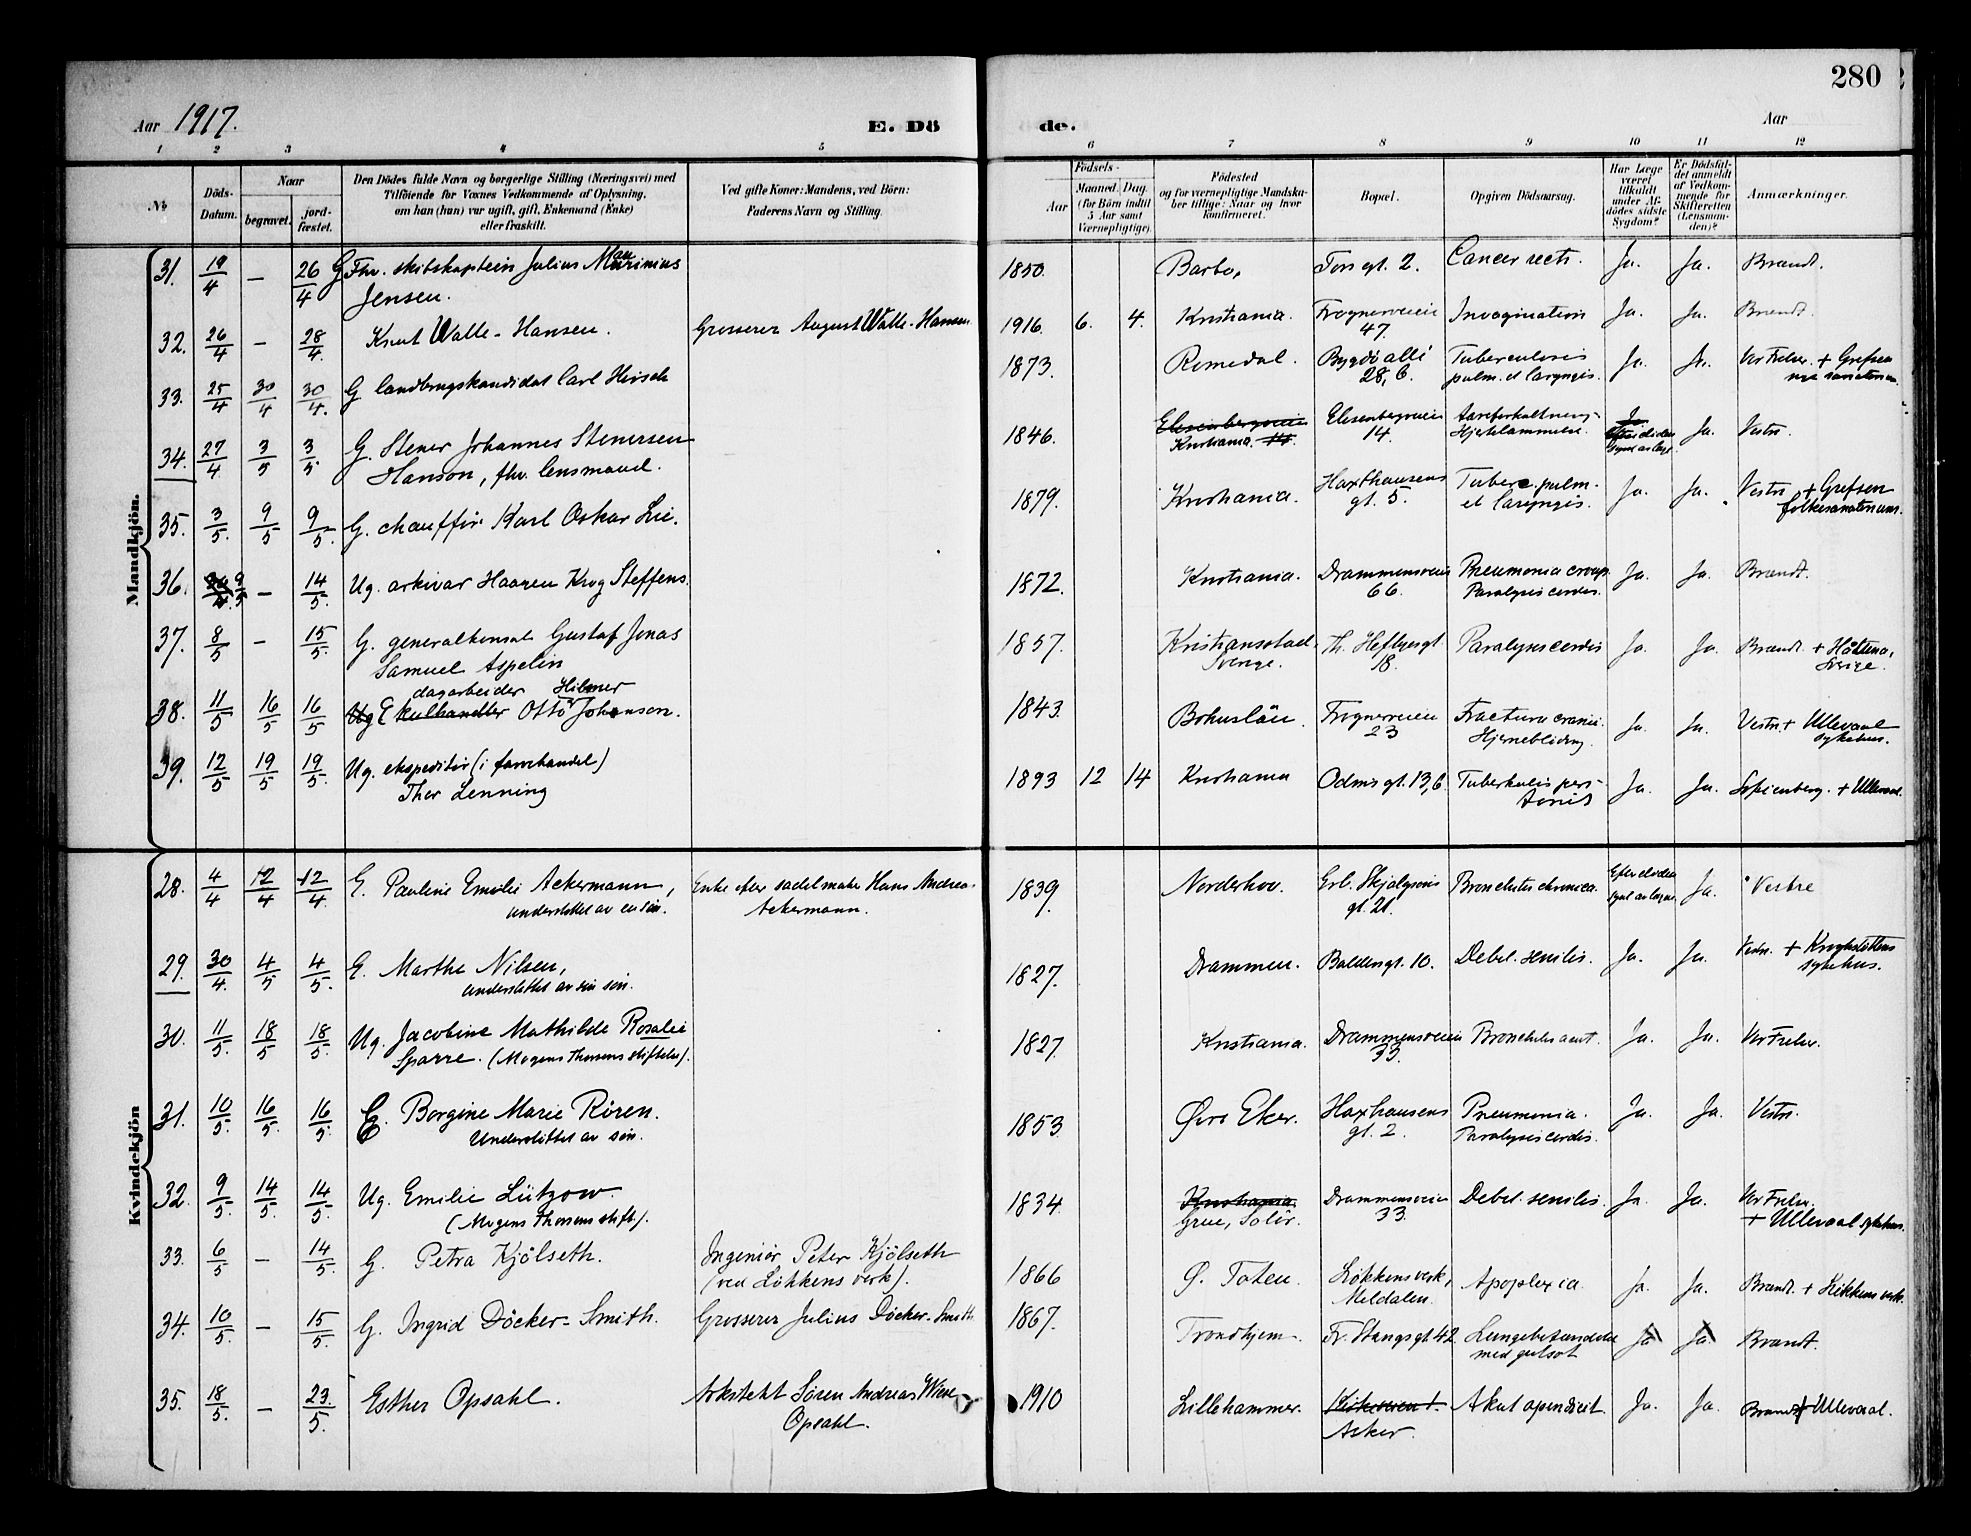 280
Aar 1917.
E. Dö
de.
Aar
1 2 3 4 5 6 7 8 9 10 11 12
No
Döds-Datum.
Naar
begravet.
jord-fæstet.
Den Dödes fulde Navn og borgerlige Stilling (Næringsvei) med
Tilföiende for Voxnes Vedkommende af Oplysning,
om han (hun) var ugift, gift, Enkemand (Enke)
eller fraskilt.
Ved gifte Koner: Mandens, ved Börn:
Faderens Navn og Stilling.
Födsels-
Aar
Maaned. Dag.
(for Börn indtil
5 Aar samt
Værnepligtige).
Födested
og for værnepligtige Mandska-
ber tillige: Naar og hvor
konfirmeret.
Bopæl.
Opgiven Dödsaarsag.
Har Læge
været
tilkaldt
under Af-
dödes sidste
Sygdom?
Er Dödsfal-
det anmeldt
af Vedkom-
mende for
Skifteretten
(Lensman-
den)?
Anmærkninger.
Mandkjön.
31. 19/4 – 26/4 G Fhv. skibskaptein Julius Marinius Jensen. 1850. Barbo, Tors gt. 2. Cancer recti. Ja. Ja. Brandt.
32. 26/4 – 28/4. Knut Walle-Hansen. Grosserer August Walle-Hansen 1916. 6. 4. Kristiania. Frognerveien 47. Invagination Ja. Ja. Brandt.
33. 25/4 30/4 30/4. G landbrugskandidat Carl Hirsch 1873. Romedal. Bygdö allé 28, b. Tuberculosis pulm. et laryngis. Ja. Ja. Vor Frelser. + Grefsen sanatorium.
34. 27/4 3/5 3/5. G. Stener Johannes Stenersen Hanson, fhv. lensmand. 1846. Elisenbergveien Kristiania. 14. Elisenbergveien 14. Aareforkalkning Hjertelammelse. Ja. Vestre.
35. 3/5. 9/5 9/5. G. chaufför Karl Oskar Lie. 1879. Kristiania. Haxthausens gt. 5. Tuberc. pulm. et laryngis. Ja. Ja. Vestre + Grefsen folkesanatorium.
36. 9/5 – 14/5. Ug. arkivar Haaren Krog Steffens. 1872. Kristiania. Drammensveien 66. Pneumonia croup. Paralysis cordis. Ja. Ja. Brandt.
37. 8/5 – 15/5. G. generalkonsul Gustaf Jonas Samuel Aspelin 1857. Kristiansstad, Sverige. Th. Heftyesgt. 18. Paralysis cordis Ja. Ja. Brandt. +
38. 11/5 16/5 16/5 Ug E kulhandler dagarbeider Otto Hilmer Johanson. 1843. Bohuslän. Frognerveien 23 Fractura cranii. Hjerneblödng Ja. Ja. Vestre + Ullevaal sykehus.
39. 12/5 19/5 19/5 Ug. ekspeditör (i farvehandel) Thor Lenning 1893 12 14 Kristiania Odins gt. 13, b. Tuberkulös peri-tonit Ja. Ja. Sofienberg. + Ullevaal.
Kvindekjön
28. 4/4 12/4 12/4. E. Pauline Emilie Ackermann, understöttet av en sön. Enke efter sadelmaker Hans Andreas Ackermann. 1839. Norderhov. Erl. Skjalgsöns gt. 21. Bronchitis chronica. Ja. Vestre
29. 30/4. 4/5 4/5. E. Marthe Nilsen, understöttet av sin sön. 1827. Drammen. Baldersgt. 10. Debil. senilis. Ja. Ja. Vestre + Krohgstöttens sykehus.
30. 11/5. 18/5 18/5. Ug. Jacobine Mathilde Rosalie Sparre. (Mogens Thorsens stiftelse). 1827. Kristiania. Drammensveien 33. Bronchitis acut. Ja. Ja. Vor Frelser.
31. 10/5. 16/5. 16/5. E. Borgine Marie Rören. Understöttet av sön. 1853. Övre Eker. Haxthausens gt. 2. Pneumonia. Paralysis cordis. Ja. Ja. Vestre.
32. 9/5. 14/5. 14/5. Ug. Emilie Lützow. (Mogens Thorsens stift.). 1834. Kristiania Grue, Solör. Drammensveien 33. Debil. senilis. Ja. Ja. Vor Frelser. + Ullevaal sykehus.
33. 6/5 – 14/5. G. Petra Kjölseth. Ingeniör Peter Kjölseth (ved Lökkens verk). 1866 Ö. Toten. Lökkens verk, Meldalen. Apoplexia Ja. Ja. Brandt. + Lökkens verk.
34. 10/5. – 15/5. G. Ingrid Döcker-Smith. Grosserer Julius Döcker-Smith. 1867. Trondhjem. Fr. Stangs gt. 42 Lungebetændelse med gulsot Ja Ja. Brandt.
35. 18/5. – 23./5. Esther Opsahl. Arkitekt Sören Andreas Wiese Opsahl. 1910 Lillehammer. Asker. Akut apendicit. Ja. Ja. Brandt + Ullevaal.